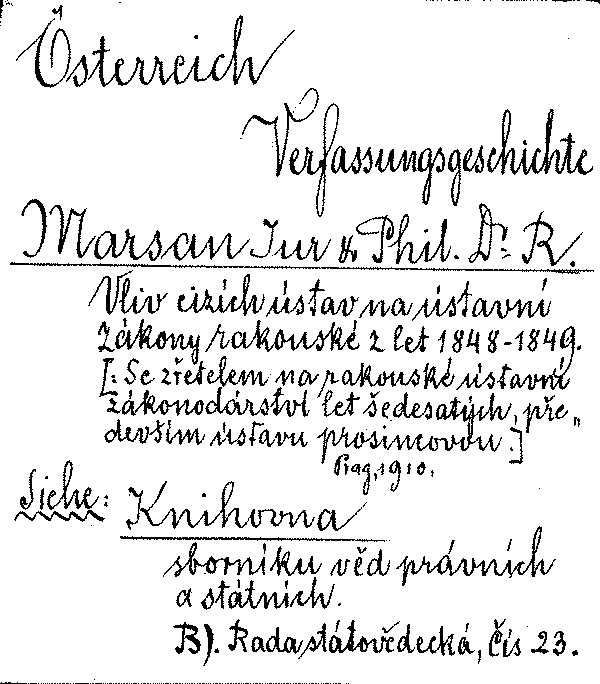 Österreich
Verfassungsgeschichte
Marsan Iur & Phil. Dr. R.
Vliv cizích ústav na ústavní
zákony rakouské z let 1848-1849.
[: Se zřetelem na rakouské ústavní
zákonodárství let šedesatých, pře„
devším ústavu prosincovou.]
Prag, 1910.
Siehe: Knihovna
sborníku věd právních
a státních.
B). Rada státovědecká, čís 23.